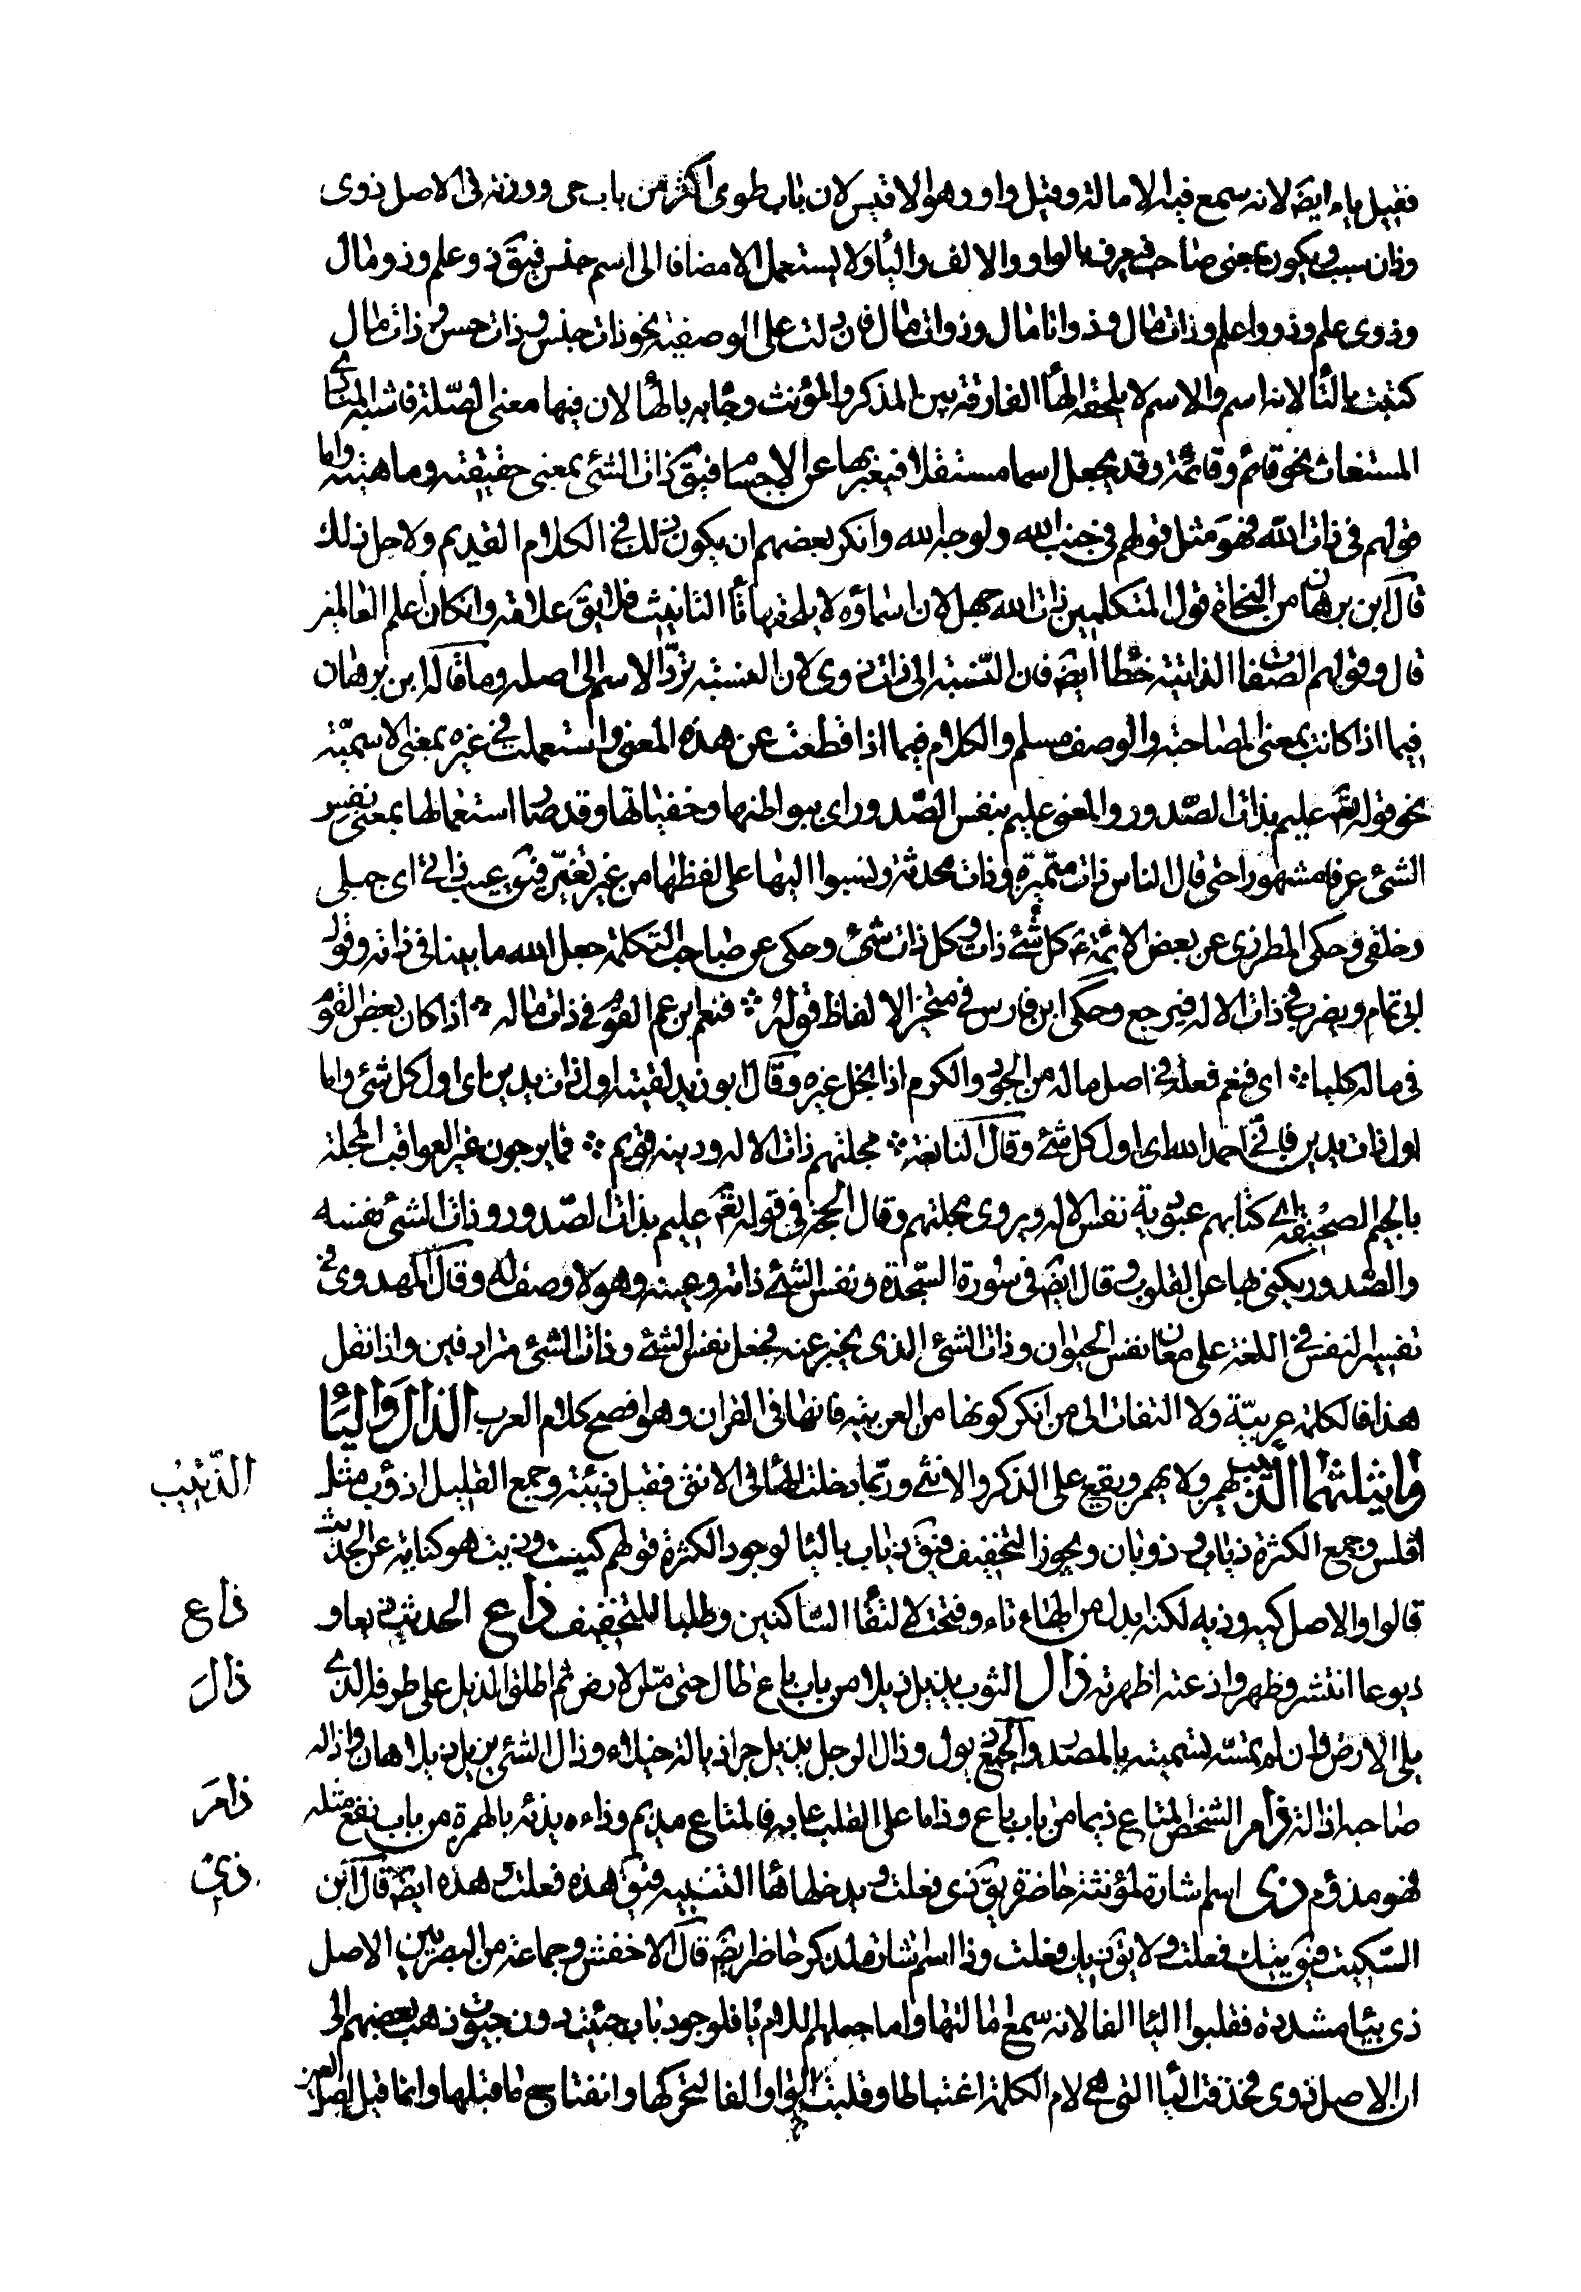 فقيل ياء ايضا لانه سمع فيه الامالة وقيل واو وهو الاقيس لان باب طوى اكثر من باب حى ووزنه فى الاصل ذوى
وزان سبب ويكون بمعنى صاحب فيعرف بالواو والالف والياء ولا يستعمل الا مضافا الى اسم جنس فيقَ ذو علم وذو مال
وذوى علم وذووا علم وذات مال وذواتا مال وذوات مال فان دلت على الوصفية نحو ذات جنس وذات حسن وذات مال
كتبت بالتاء لانه اسم والاسم لا يلحقه الهاء الفارقة بين المذكر والمؤنث وجاء به بالهاء لان فيها معنى الصّلة فاشبه المشتاى
المستغاث نحو قائم وقائمة وقد يجعل اسما مستقلا فيعبر بها عن الاجسام فيقَ ذات الشئ بمعنى حقيقته وماهيته واما
قولهم فى ذات الله فهو مثل قولهم فى جنب الله ولوجه الله وانكر بعضهم ان يكون ذلك فى الكلام القديم ولاجل ذلك
قال ابن برهان من النحاة قول المتكلمين ذات الله جهل لان اسماؤه لا يلحقها تاء التانيث فلا يقَ علامة وان كان اعلم العالمين
قال وقولهم الصفات الذاتية خطأ ايضَ فان النّسبة الى ذات ذوى لان النسبة تردّ الاسم الى اصله وما قاله ابن برهان
فيما اذا كانت بمعنى المصاحبة والوصف مسلم والكلام فيما اذا قطعت عن هذه المعنى واستعملت فى غيره بمعنى الاسميّة
نحو قوله تعَ عليم بذات الصّدور والمعنى عليم بنفس الصّدور اى ببواطنها وخفياتها وقد صار استعمالها بمعنى نفس
الشئ عرفا مشهورا حتى قال الناس ذات متميّزة وذات محدثة ونسبوا اليها على لفظها من غير تغيّر فيقَ عيب ذاتى اى جبلى
وخلقى وحكى المطرزى عن بعض الائمة كل شئ ذات وكل ذات شئ وحكى عن صاحب التكلمة جعل الله ما بيننا فى ذاته وقول
ابى تمام ويضرب فى ذات الاله فيرجع وحكى ابن فارس فى متخير الالفاظ قوله ۞ فنعم ابن عم القوم فى ذات ماله ۞ اذا كان بعض القوم
فى ماله كلبا ۞ اى فنعم فعله فى اصل ماله من الجود والكرم اذا بخل غيره وقال ابو زيد لقيته اول ذات يدين اى اول كل شئ واما
اول ذات يدين فانى احمد الله اى اول كل شئ وقال النابغة ۞ مجلتهم ذات الاله ودينهم قويم ۞ فما يرجون غير العواقب المجلة
بالجيم الصحيفة اى كتابهم عبوية نفس الاله ويروى محلتهم وقال الحجة فى قوله تعَ عليم بذات الصّدور وذات الشئ نفسه
والصّدور يكنى بها عن القلوب وقال ايضَ فى سورة السّجدة ونفس الشئ ذاته وعينه وهولا وصف له وقال المهدوى فى
تفسير النفس فى اللغة على معان نفس الحيوان وذات الشئ الذى يخبر عنه فجعل نفس الشئ وذات الشئ مترادفين واذا نقل
هذا فالكلمة عربيّة ولا التفات الى من انكر كونها من العربية فانها فى القران وهو افصح كلام العرب الذال والياء
وما يثلثهما الذّئب يهمز ولا يهمز ويقع على الذكر والانثى وربّما دخلت الهاء فى الانثى فقيل ذئبة وجمع القليل اذؤب مثل
الذّئيب
افلس وجمع الكثرة ذئاب وذوبان ويجوز التخفيف فيقَ ذياب بالياء لوجود الكثرة قولهم كيت وذيت هو كناية عن الحديث
قالوا والاصل كيه وذيه لكنه ابدل من الهاء تاء وفتحت لالتقاء السّاكنين وطلبا للتخفيف ذاع الحديث ذيعا و
ذاع
ذيوعا انتشر وظهر واذعته اظهرته ذال الثوب يذيل ذيلا من باب باع طال حتى مسّ الارض ثم اطلق الذيل على طرفه الذى
ذالَ
يلى الارض وان لم يمسّه تسمية بالمصدر والجمع ذيول وذال الرجل يذيل جر اذياله خيلاء وذال الشئ يذيل ذيلا هان واذاله
صاحبه اذالة ذام الشخص المتاع ذيما من باب باع وذاما على القلب عابه فالمتاع مذيم وذاءه يذئه بالهمزة من باب نفع مثله
ذامَ
فهو مذؤم ذى اسم شارة لمؤنثة حاضرة يقَ ذى فعلت ويدخلها هاء التنبيه فيقَ هذه فعلت وهذه ايضَ قال ابن
ذى
السّكيت فيقَ تيك فعلت ولا يقَ ذيك فعلت وذا اسم شارة لمذكر حاضر ايضَ قال الاخفش وجماعة من البصريين الاصل
ذى بياء مشددة فقلبوا الياء الفا لانه سمع امالتها واما جعلهم اللام ياء فلوجود باب حييت دون حيوت وذهب بعضهم الى
ان الاصل ذوى فحذفت الياء التى هى لام الكلمة اعتباطا وقلبت الواو الفا لتحركها وانفتاح ما قبلها وانما قيل اصل العين